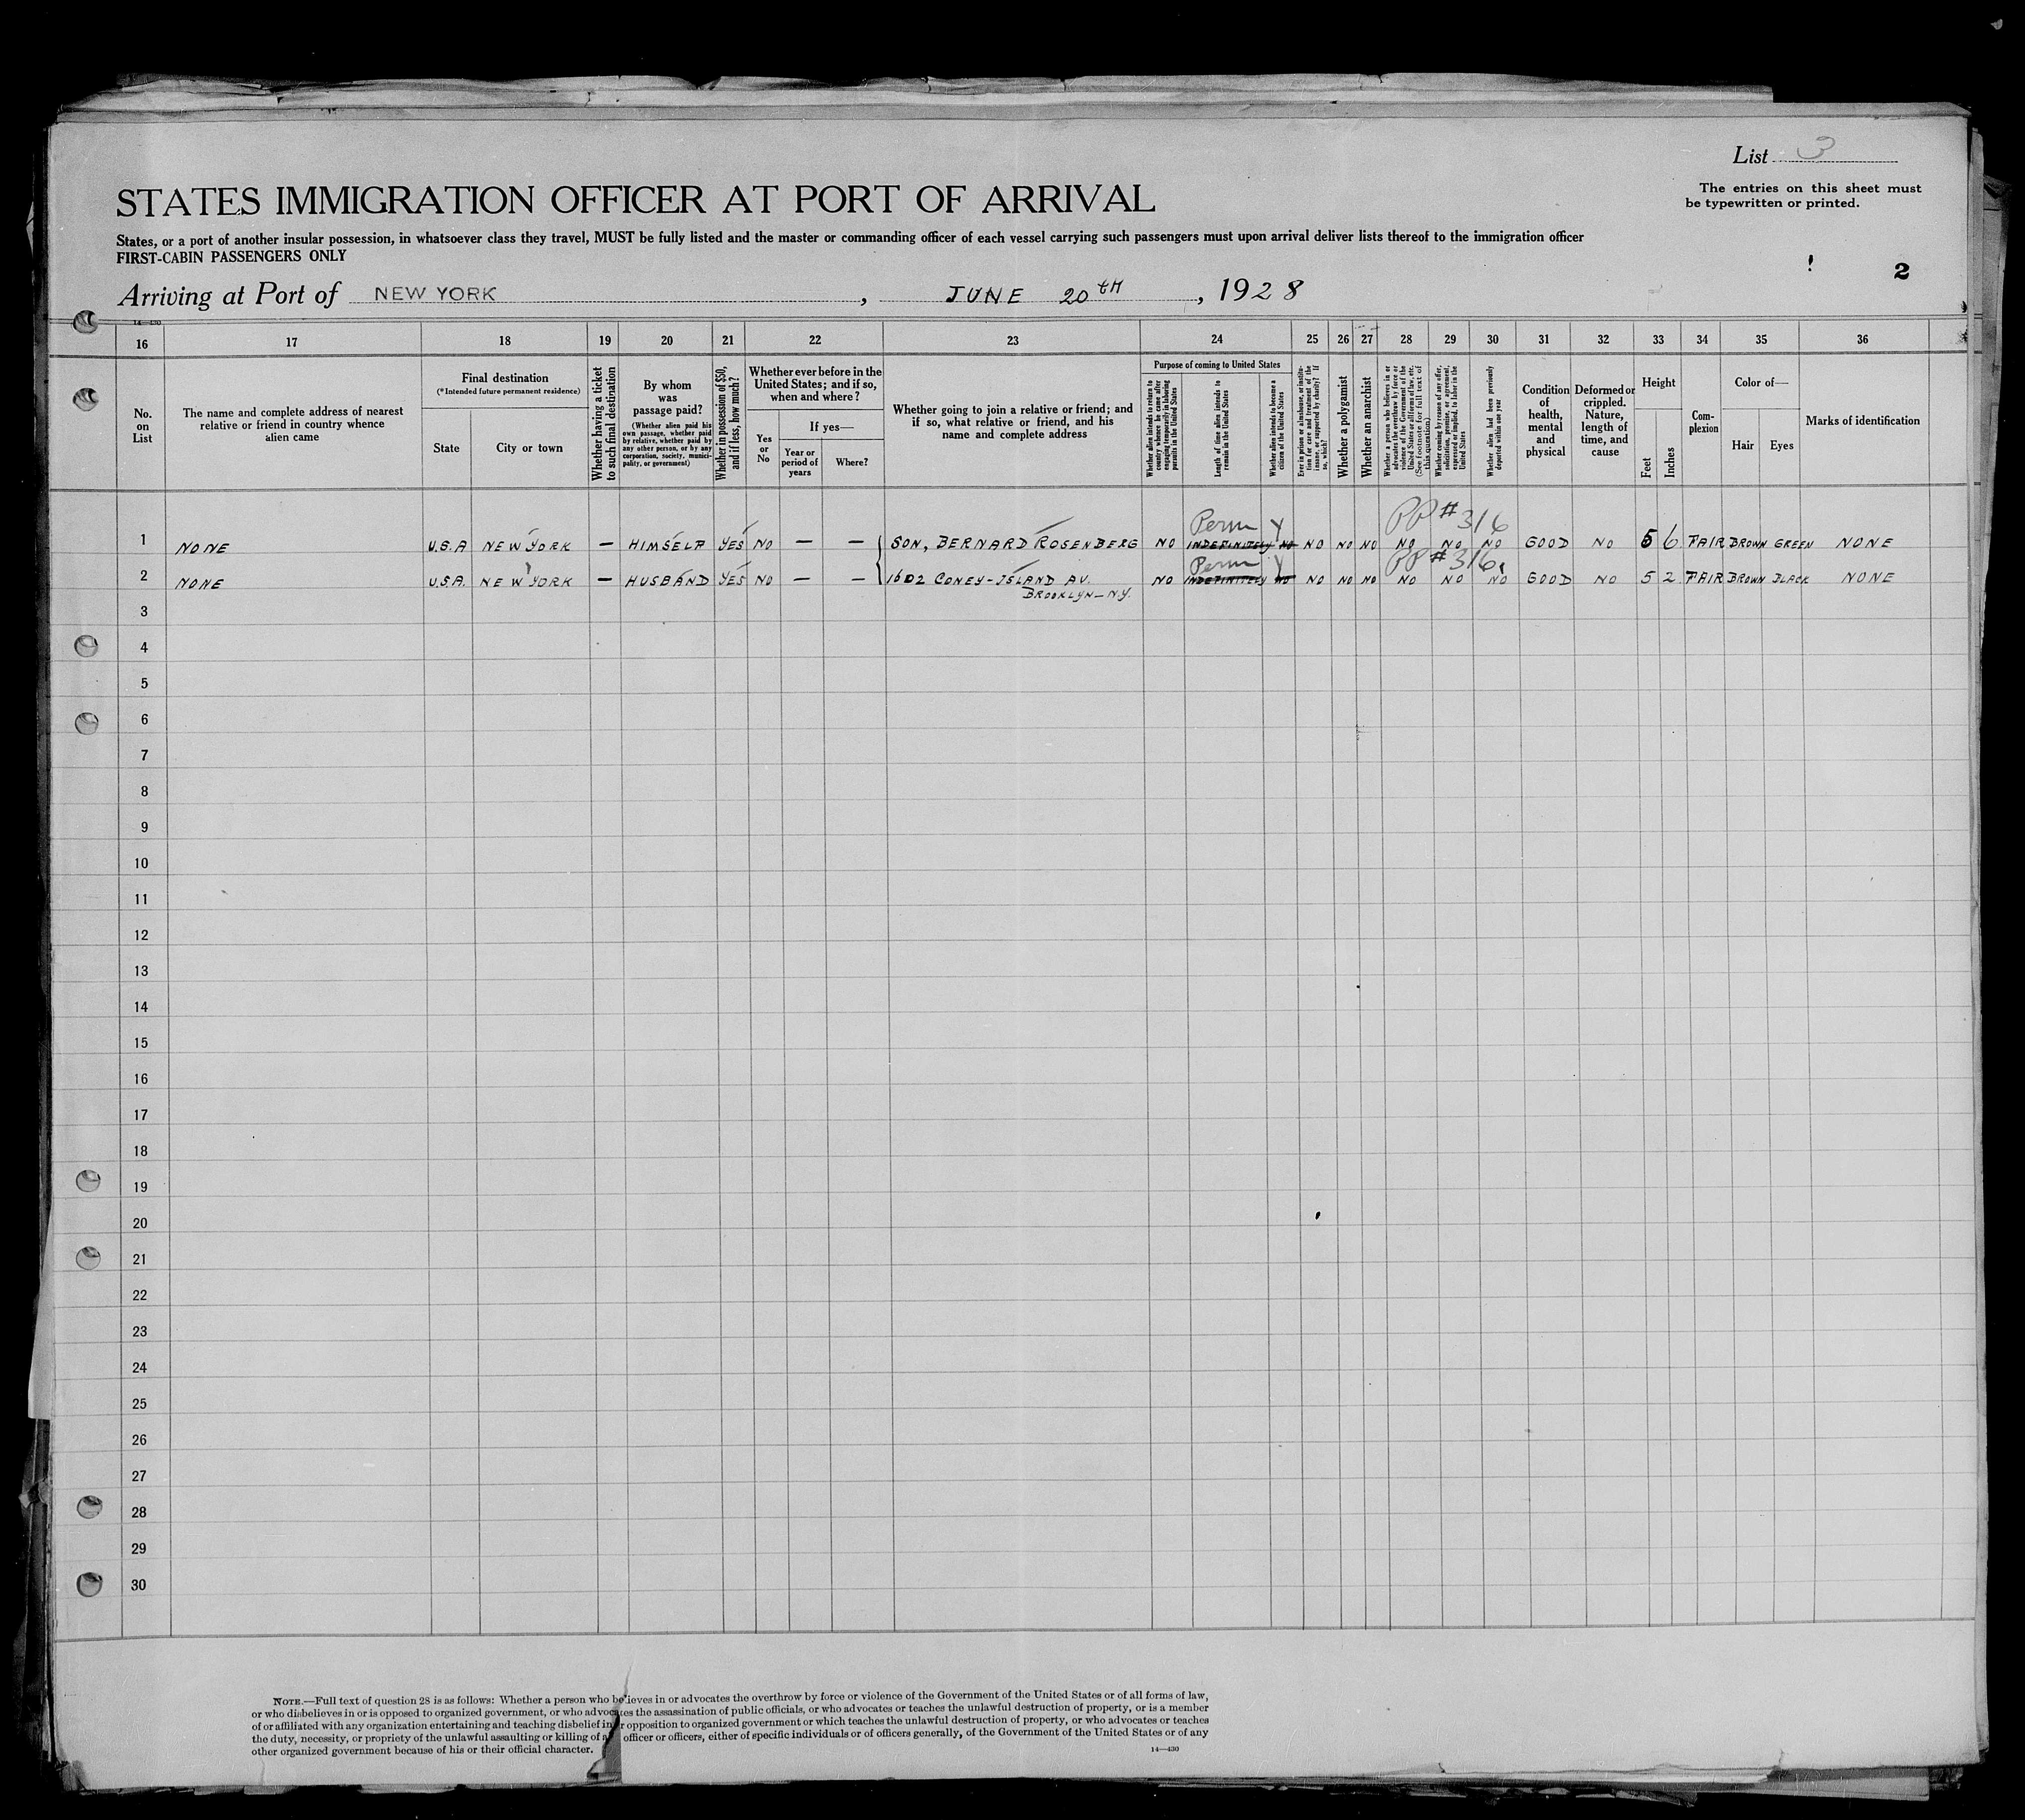 List 3
STATES IMMIGRATION OFFICER AT PORT OF ARRIVAL
The entries on this sheet must
be typewritten or printed.
States, or a port of another insular possession, in whatsoever class they travel, MUST be fully listed and the master or commanding officer of each vessel carrying such passengers must upon arrival deliver lists thereof to the immigration officer
FIRST-CABIN PASSENGERS ONLY
2
Arriving at Port of NEW YORK, JUNE 20TH, 1928
14—430
16 17 18 19 20 21 22 23 24 25 26 27 28 29 30 31 32 33 34 35 36
No.
on
List
The name and complete address of nearest
relative or friend in country whence
alien came
Final destination
(*Intended future permanent residence)
State
City or town
Whether having a ticket
to such final destination
By whom
was
passage paid?
(Whether alien paid his
own passage, whether paid
by relative, whether paid by
any other person, or by any
corporation, society, munici-
pality, or government)
Whether in possession of $50,
and if less, how much?
Whether ever before in the
United States; and if so,
when and where?
Yes
or
No
If yes—
Year or
period of
years
Where?
Whether going to join a relative or friend; and
if so, what relative or friend, and his
name and complete address
Purpose of coming to United States
Whether alien intends to return to
country whence he came after
engaging temporarily in laboring
pursuits in the United States
Length of time alien intends to
remain in the United States
Whether alien intends to become a
citizen of the United States
Ever in prison or almshouse, or institu-
tion for care and treatment of the
insane, or supported by charity? If
so, which?
Whether a polygamist
Whether an anarchist
Whether a person who believes in or
advocates the overthrow by force or
violence of the Government of the
United States or all forms of law, etc.
(See footnote for full text of
this question)
Whether coming by reason of any offer,
solicitation, promise, or agreement,
expressed or implied, to labor in the
United States
Whether alien had been previously
deported within one year
Condition
of
health,
mental
and
physical
Deformed or
crippled.
Nature,
length of
time, and
cause
Height
Feet
Inches
Com-
plexion
Color of—
Hair
Eyes
Marks of identification
Perm Y PP #316
1 NONE U.S.A NEW YORK — HIMSELF YES NO — — SON, BERNARD ROSENBERG NO INDEFINITELY NO NO NO NO NO NO NO GOOD NO 5 6 FAIR BROWN GREEN NONE
Perm Y PP #316
2 NONE U.S.A. NEW YORK — HUSBAND YES NO — — 1602 CONEY-ISLAND AV. NO INDEFINITELY NO NO NO NO NO NO NO GOOD NO 5 2 FAIR BROWN BLACK NONE
BROOKLYN—N.Y.
3
4
5
6
7
8
9
10
11
12
13
14
15
16
17
18
19
20
21
22
23
24
25
26
27
28
29
30
NOTE.—Full text of question 28 is as follows: Whether a person who believes in or advocates the overthrow by force or violence of the Government of the United States or of all forms of law,
or who disbelieves in or is opposed to organized government, or who advocates the assassination of public officials, or who advocates or teaches the unlawful destruction of property, or is a member
of or affiliated with any organization entertaining and teaching disbelief in or opposition to organized government or which teaches the unlawful destruction of property, or who advocates or teaches
the duty, necessity, or propriety of the unlawful assaulting or killing of any officer or officers, either of specific individuals or of officers generally, of the Government of the United States or of any
other organized government because of his or their official character.
14—430